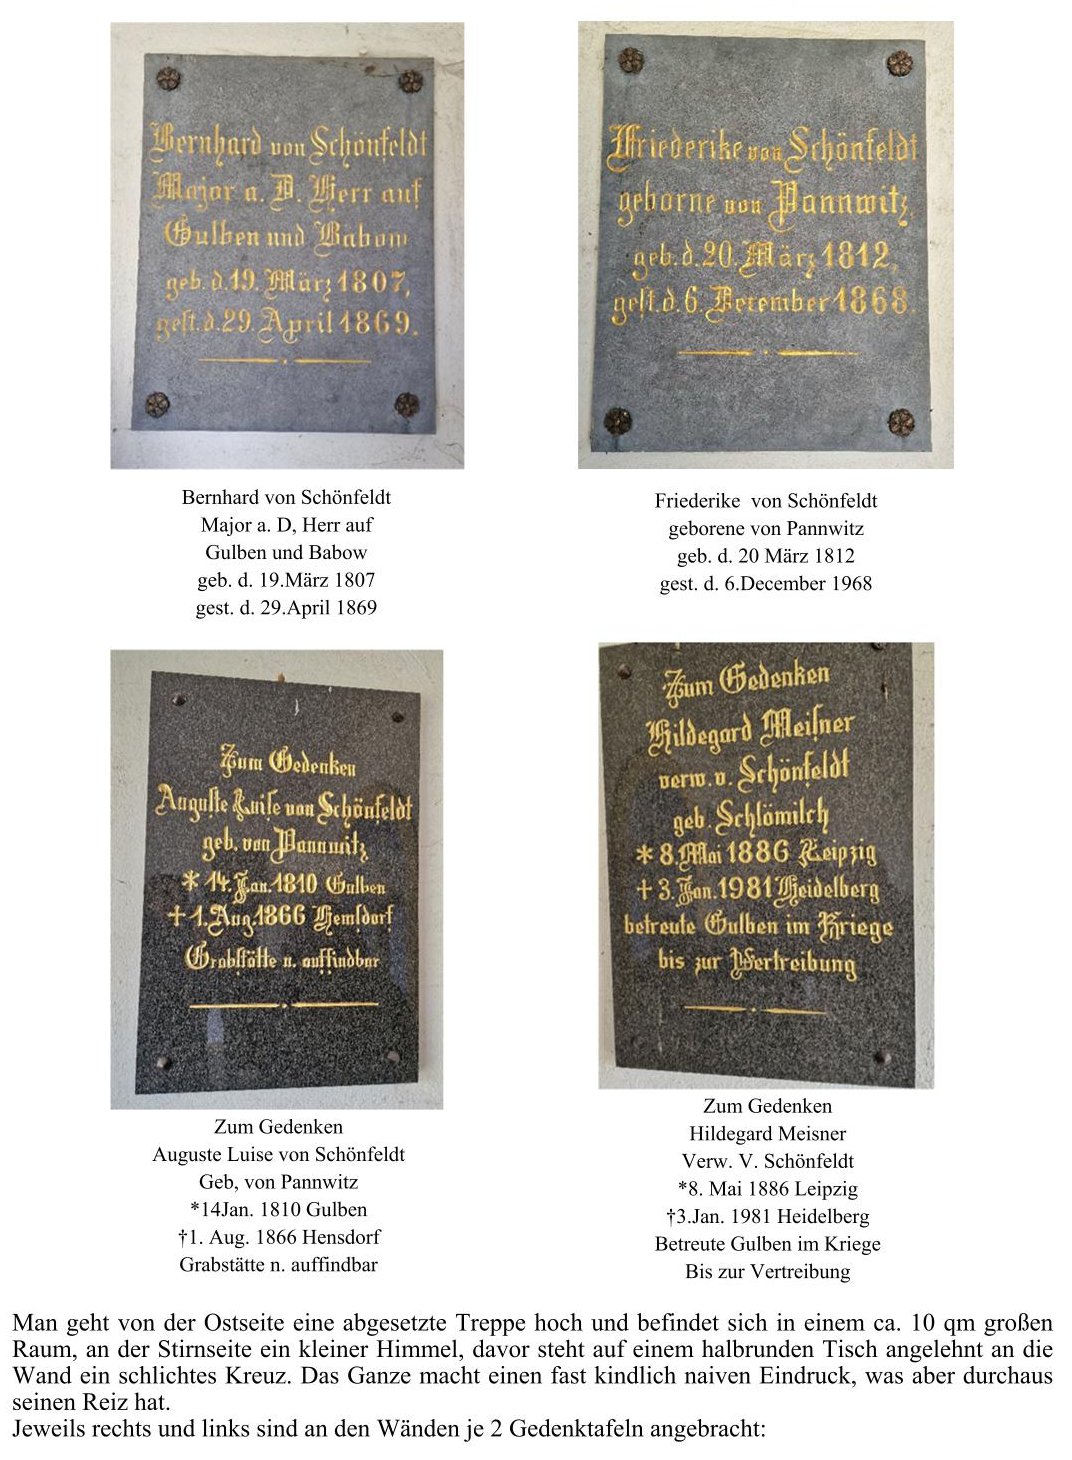 Bernhard von Schönfeldt
Major a. D. Herr auf
Gulben und Babow
geb. d. 19. März 1807,
gest. d. 29. April 1869.
Friederike von Schönfeldt
geborne von Pannwitz,
geb. d. 20. März 1812,
gest. d. 6. December 1868.
Bernhard von Schönfeldt
Major a. D, Herr auf
Gulben und Babow
geb. d. 19.März 1807
gest. d. 29.April 1869
Friederike von Schönfeldt
geborene von Pannwitz
geb. d. 20 März 1812
gest. d. 6.December 1968
Zum Gedenken
Auguste Luise von Schönfeldt
geb. von Pannwitz
* 14. Jan. 1810 Gulben
† 1. Aug. 1866 Hemsdorf
Grabstätte n. auffindbar
Zum Gedenken
Hildegard Meisner
verw. v. Schönfeldt
geb. Schlömilch
* 8. Mai 1886 Leipzig
† 3. Jan. 1981 Heidelberg
betreute Gulben im Kriege
bis zur Vertreibung
Zum Gedenken
Auguste Luise von Schönfeldt
Geb, von Pannwitz
*14Jan. 1810 Gulben
†1. Aug. 1866 Hensdorf
Grabstätte n. auffindbar
Zum Gedenken
Hildegard Meisner
Verw. V. Schönfeldt
*8. Mai 1886 Leipzig
†3.Jan. 1981 Heidelberg
Betreute Gulben im Kriege
Bis zur Vertreibung
Man geht von der Ostseite eine abgesetzte Treppe hoch und befindet sich in einem ca. 10 qm großen
Raum, an der Stirnseite ein kleiner Himmel, davor steht auf einem halbrunden Tisch angelehnt an die
Wand ein schlichtes Kreuz. Das Ganze macht einen fast kindlich naiven Eindruck, was aber durchaus
seinen Reiz hat.
Jeweils rechts und links sind an den Wänden je 2 Gedenktafeln angebracht: